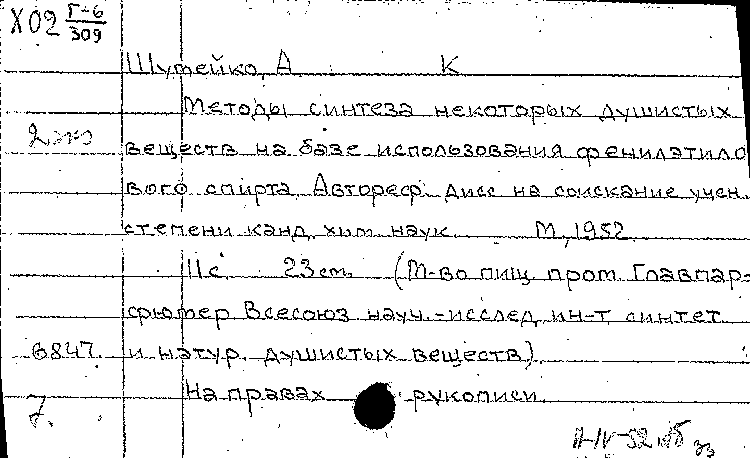 Х02 Г-6/309
Шутейко, А К
Методы синтеза некоторых душистых
2 экз
веществ на базе использования фенилэтило
вого спирта. Автореф. дисс на соискание учен.
степени канд. хим. наук. М., 1952.
11с. 23 см. (М-во пищ. пром. Главпар-
фюмер Всесоюз науч.-исслед. ин-т синтет
6847. и натур. душистых веществ).
На правах рукописи.
7.